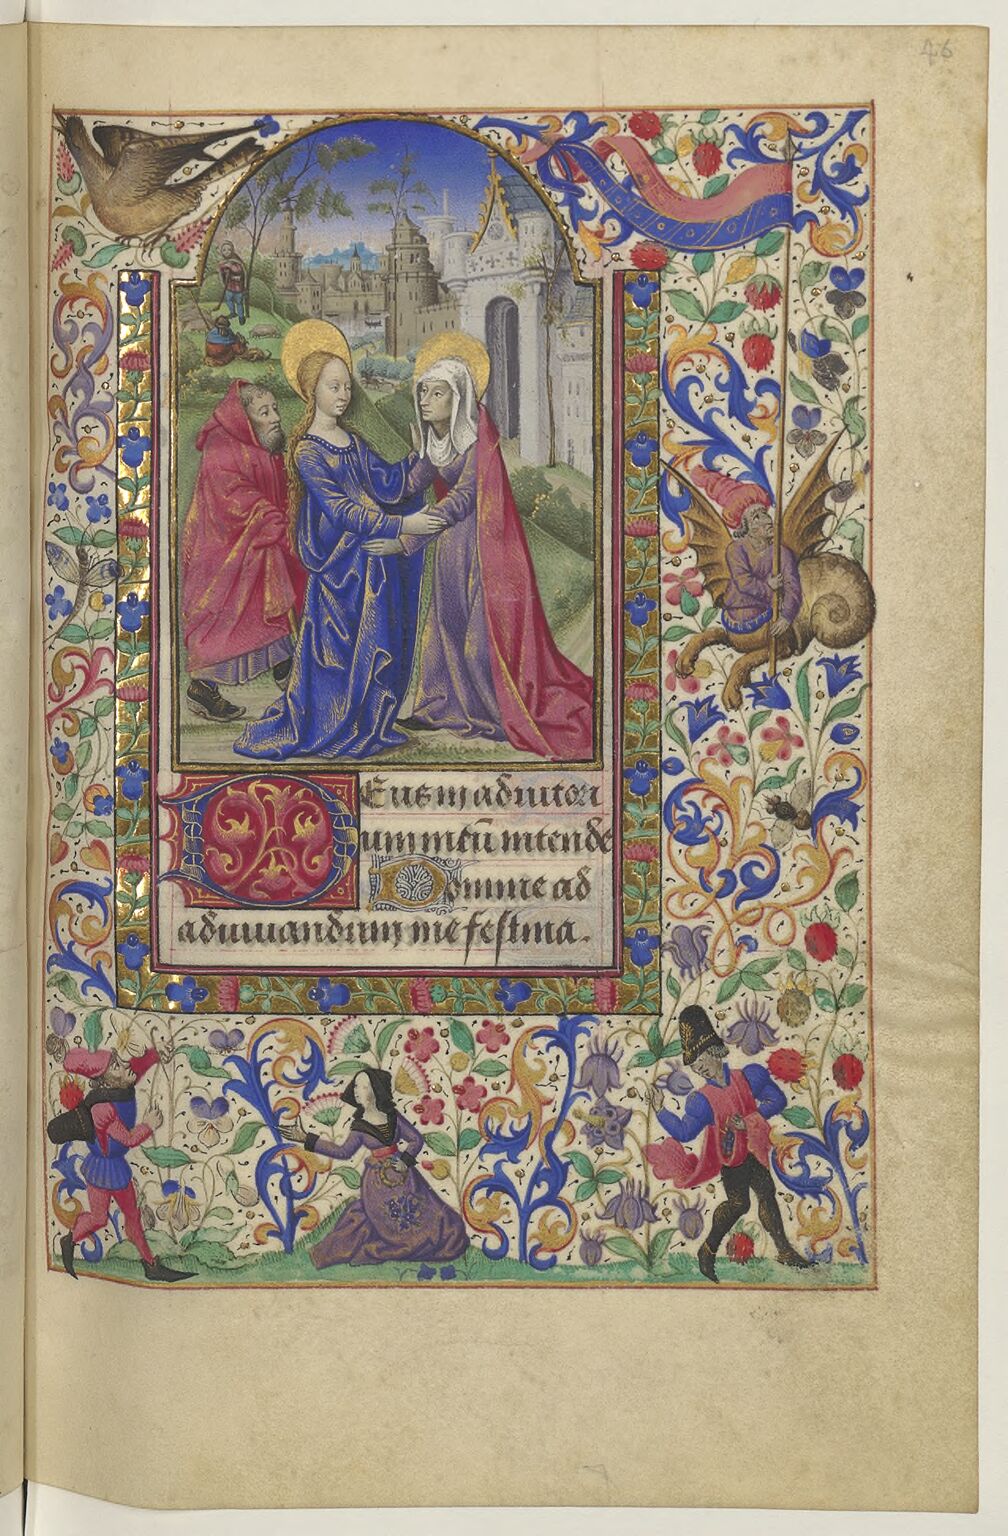 46
Deus in adiutori
um meū intende
Domine ad
adiuuandum me festina.